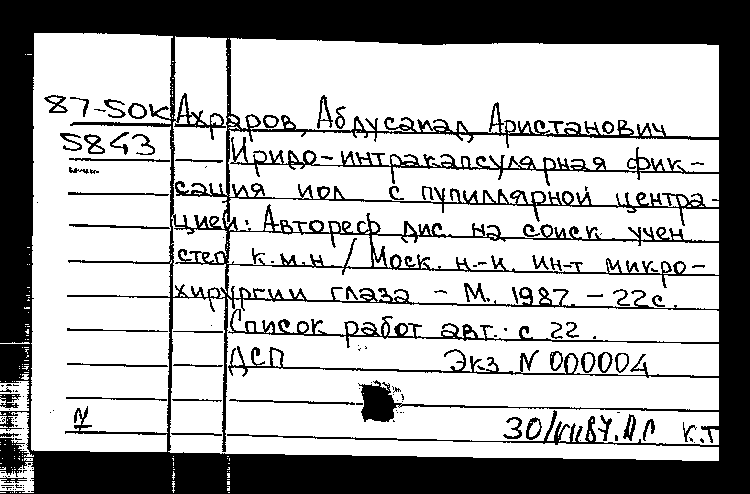 87-50К Ахраров, Абдусамад Аристанович
5843 Иридо-интракапсулярная фик-
сация иол с пупиллярной центра-
цией: Автореф дис. на соиск учен
степ. к.м.н / Моск. н.-и. ин-т микро-
хирургии глаза - М. 1987. - 22с.
Список работ авт.: с 22.
ДСП Экз N 000004
N К.Т